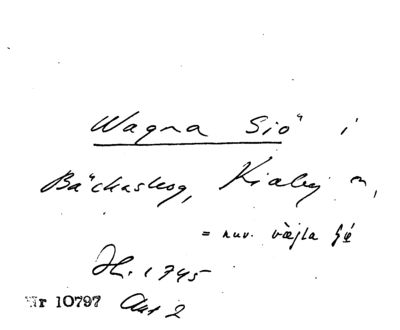 Wagna Siö i
Bäckaskog, Kiaby sn,
= nuv. væjla ʃø
Jh. 1745
Nr 10797 Akt 2